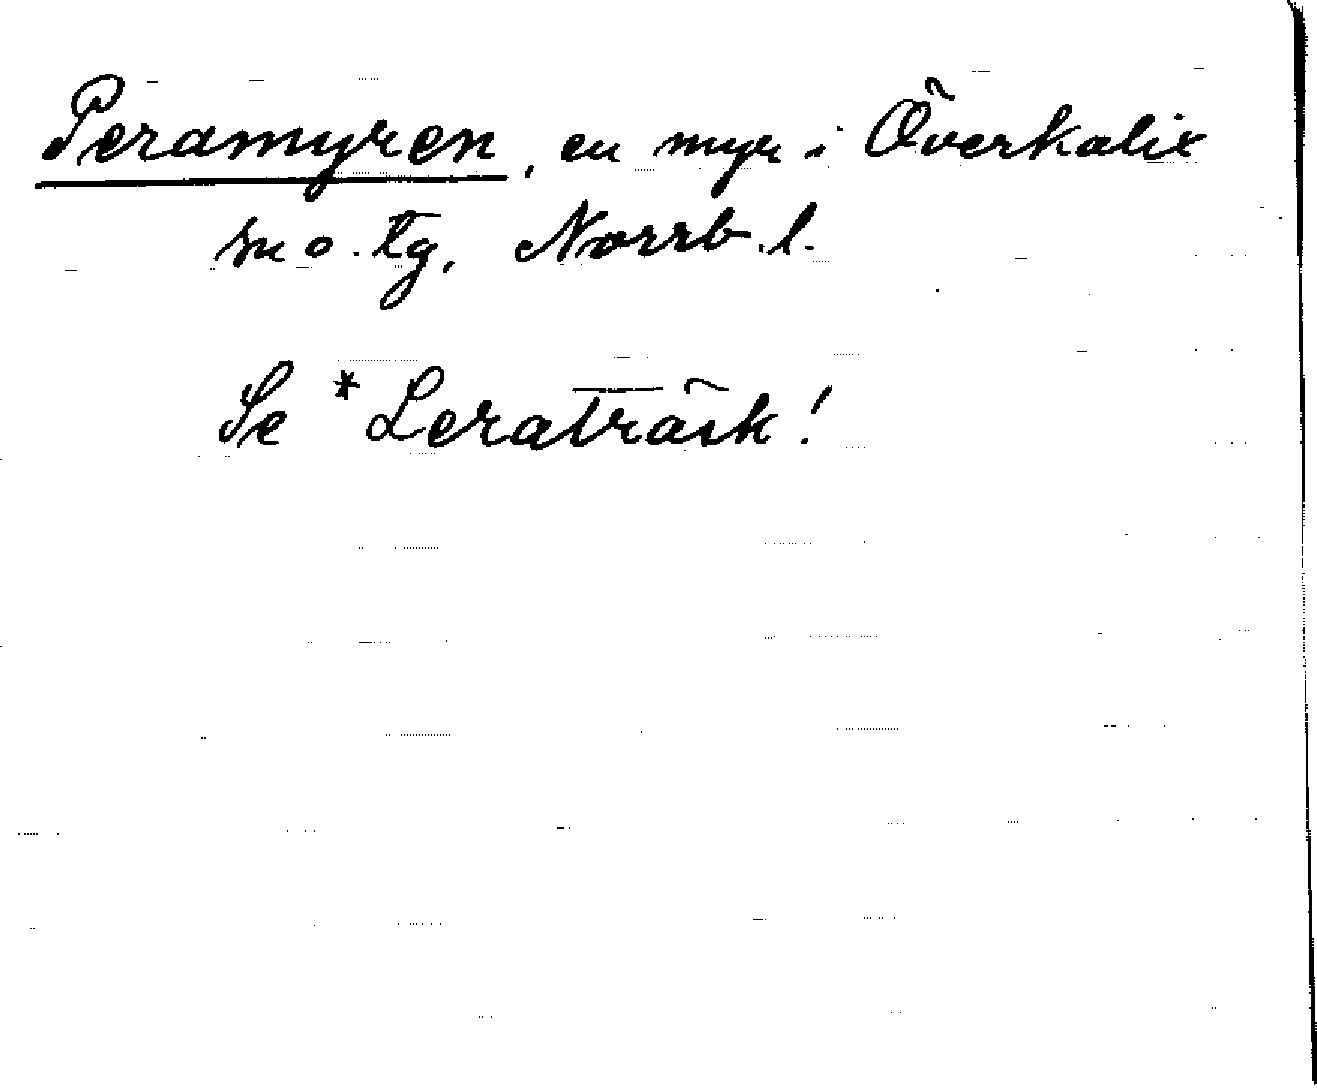 Peramyren, en myr i Överkalix
sn o. tg, Norrb. l.
Se *Leraträsk!